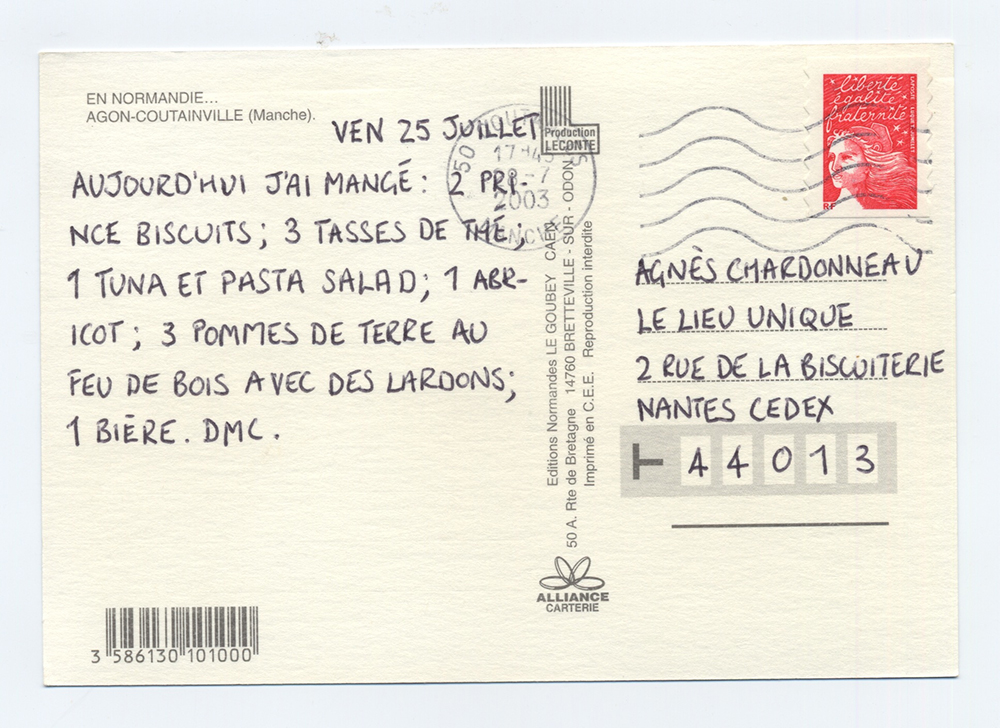 EN NORMANDIE...
AGON-COUTAINVILLE (Manche).
VEN 25 JUILLET
AUJOURD'HUI J'AI MANGÉ : 2 PRI-
NCE BISCUITS ; 3 TASSES DE THÉ ;
1 TUNA ET PASTA SALAD ; 1 ABR-
ICOT ; 3 POMMES DE TERRE AU
FEU DE BOIS AVEC DES LARDONS ;
1 BIÈRE. DMC.
3 586130 101000
Production
LECONTE
Editions Normandes LE GOUBEY CAEN
50 A. Rte de Bretagne 14760 BRETTEVILLE - SUR - ODON
Imprimé en C.E.E. Reproduction interdite
ALLIANCE
CARTERIE
50
17H45
28-7
2003
liberté
égalité
fraternité
RF
AGNÈS CHARDONNEAU
LE LIEU UNIQUE
2 RUE DE LA BISCUITERIE
NANTES CEDEX
44013